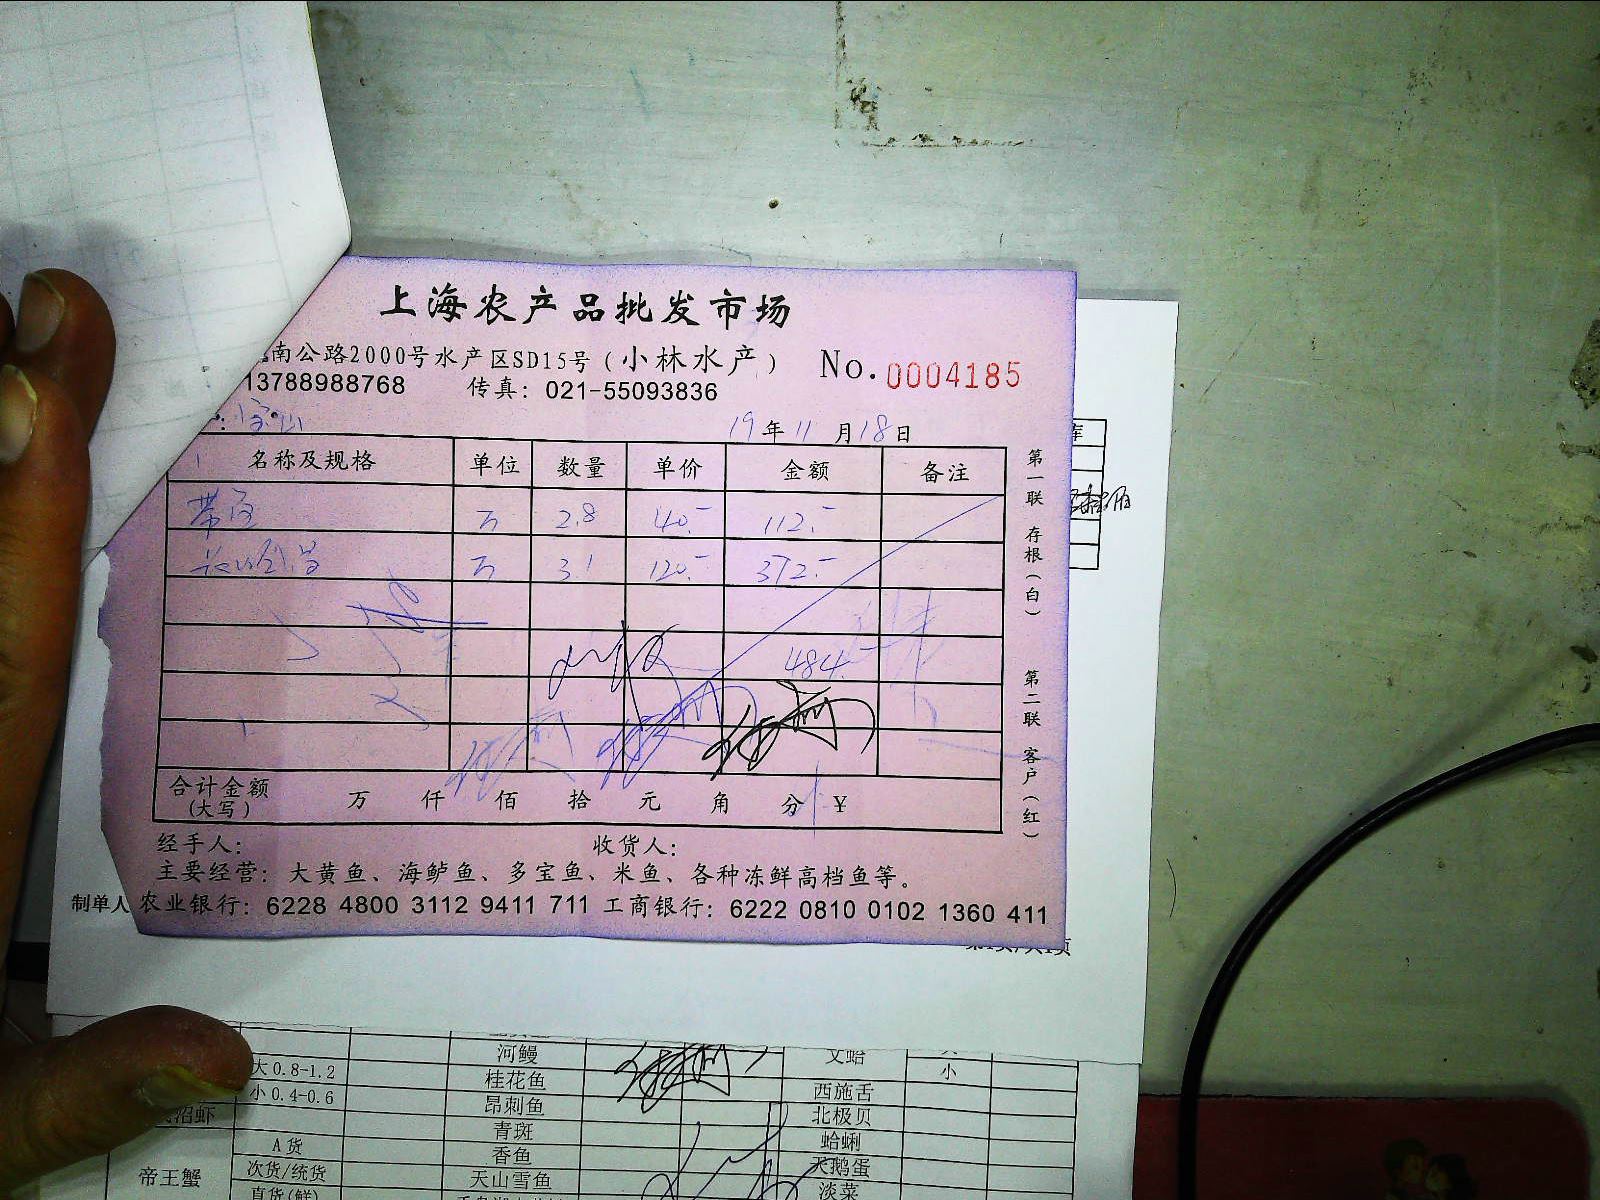 上海农产品批发市场
南公路2000号水产区SD15号(小林水产) No.0004185
13788988768 传真: 021-55093836
: 宝山 19年11月18日
名称及规格 单位 数量 单价 金额 备注
带鱼 斤 2.8 40.- 112.-
斤 3.1 120.- 372.-
484.-
合计金额(大写) 万 仟 佰 拾 元 角 分 ¥
经手人: 收货人:
主要经营: 大黄鱼、海鲈鱼、多宝鱼、米鱼、各种冻鲜高档鱼等。
农业银行: 6228 4800 3112 9411 711 工商银行: 6222 0810 0102 1360 411
第一联 存根(白) 第二联 客户(红)
库
制单人
第1页/共1页
河鳗 文蛤 小
大0.8-1.2 桂花鱼 西施舌
小0.4-0.6 昂刺鱼 北极贝
青斑 蛤蜊
A货 香鱼 天鹅蛋
帝王蟹 次货/统货 天山雪鱼 淡菜
直货(鲜)